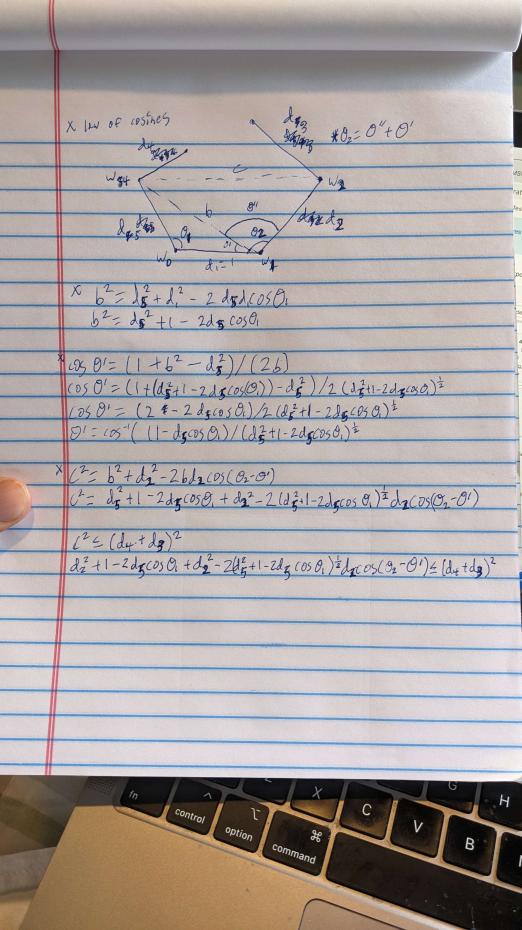 x law of cosines
d₃
*θ₂ = θ'' + θ'
d₄
c
W₄
W₂
b
θ''
d₅
θ₁
θ'
θ₂
d₂
W₀
d₁ = 1
W₁
x b² = d₅² + d₁² - 2 d₅d₁cosθ₁
b² = d₅² + 1 - 2d₅ cosθ₁
x cos θ' = (1 + b² - d₅²) / (2b)
cos θ' = (1 + (d₅² + 1 - 2d₅cos(θ₁)) - d₅²) / 2 (d₅² + 1 - 2d₅cosθ₁)^½
cos θ' = (2 - 2d₅cosθ₁) / 2 (d₅² + 1 - 2d₅cosθ₁)^½
θ' = cos⁻¹( (1 - d₅cosθ₁) / (d₅² + 1 - 2d₅cosθ₁)^½
x c² = b² + d₂² - 2bd₂cos(θ₂-θ')
c² = d₅² + 1 - 2d₅cosθ₁ + d₂² - 2(d₅² + 1 - 2d₅cosθ₁)^½ d₂cos(θ₂-θ')
c² ≤ (d₄ + d₃)²
d₅² + 1 - 2d₅cosθ₁ + d₂² - 2(d₅² + 1 - 2d₅cosθ₁)^½ d₂cos(θ₂-θ') ≤ (d₄ + d₃)²
fn
control
option
command
X
C
V
B
G
H